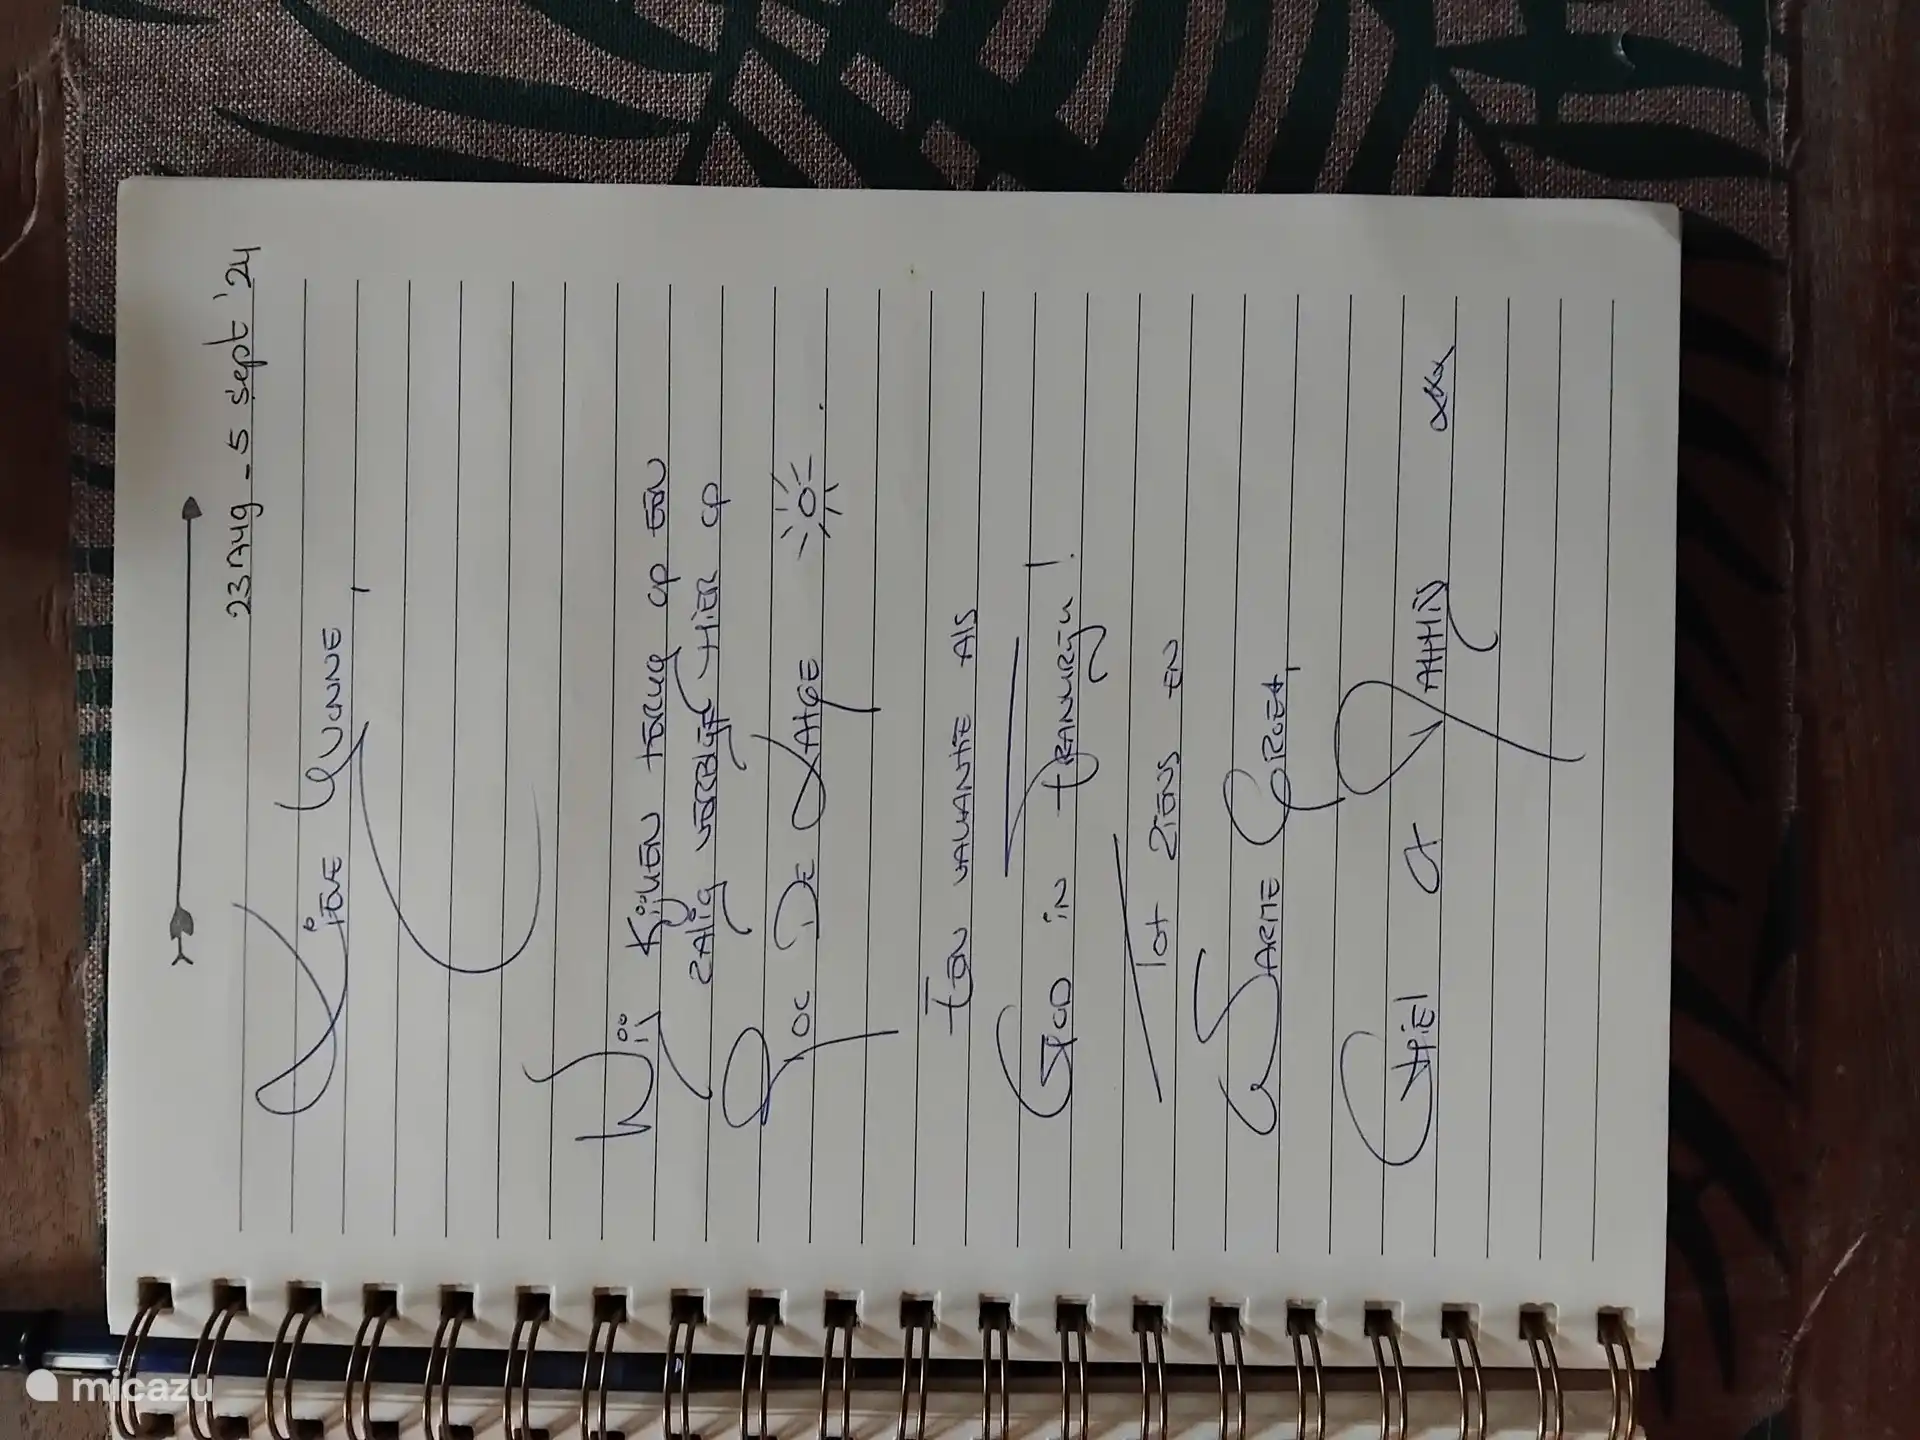 23 Aug - 5 sept '24
Lieve Yvonne,
Wij kijken terug op een
zalig verblijf hier op
Roc De L'Aige
Een vakantie als
God in Frankrijk!
Tot ziens en
Warme Groet,
& Mathijs
micazu